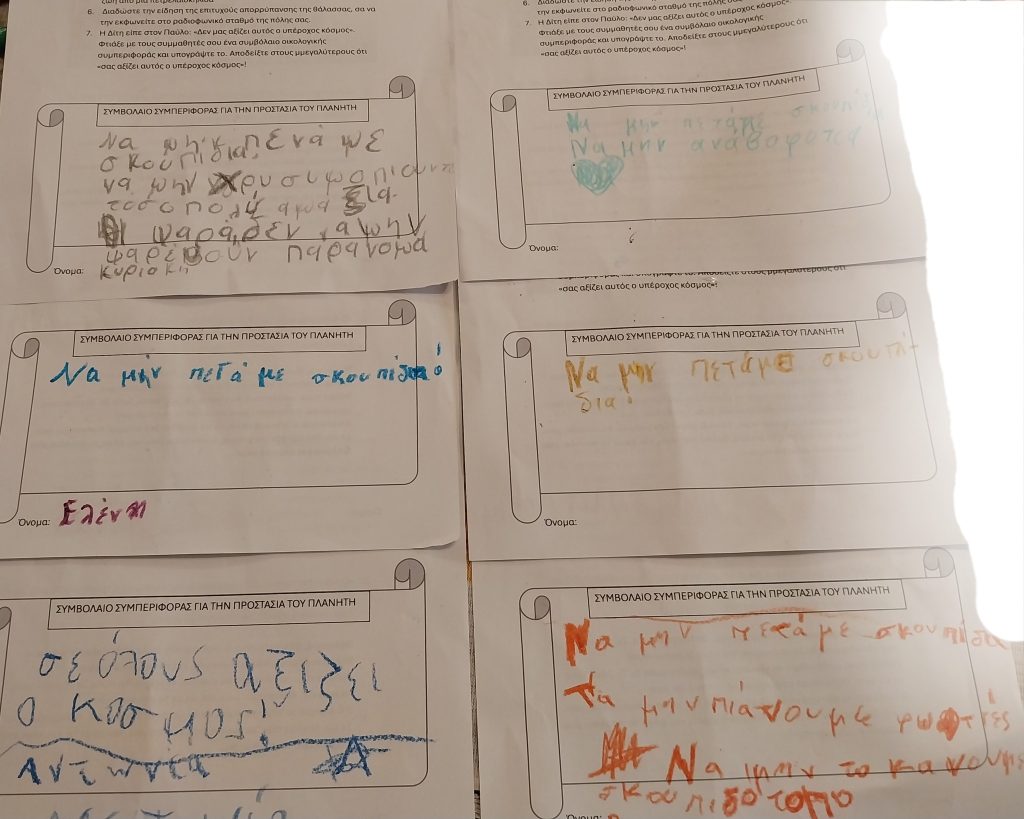 6. Διαδώστε την είδηση της επιτυχούς απορρύπανσης της θάλασσας, σα να
την εκφωνείτε στο ραδιοφωνικό σταθμό της πόλης σας.
7. Η Δίτη είπε στον Παύλο: «Δεν μας αξίζει αυτός ο υπέροχος κόσμος».
Φτιάξε με τους συμμαθητές σου ένα συμβόλαιο οικολογικής
συμπεριφοράς και υπογράψτε το. Αποδείξτε στους μμεγαλύτερους ότι
«σας αξίζει αυτός ο υπέροχος κόσμος»!
ΣΥΜΒΟΛΑΙΟ ΣΥΜΠΕΡΙΦΟΡΑΣ ΓΙΑ ΤΗΝ ΠΡΟΣΤΑΣΙΑ ΤΟΥ ΠΛΑΝΗΤΗ
Να μην πενάμε
σκουπίδια.
να μην
τοσο πολή
ψαρά, δεν
παράνομα
Όνομα: κυριακη
την εκφωνείτε στο ραδιοφωνικό σταθμό της πόλης
7. Η Δίτη είπε στον Παύλο: «Δεν μας αξίζει αυτός ο υπέροχος κόσμος».
Φτιάξε με τους συμμαθητές σου ένα συμβόλαιο οικολογικής
συμπεριφοράς και υπογράψτε το. Αποδείξτε στους μμεγαλύτερους ότι
«σας αξίζει αυτός ο υπέροχος κόσμος»!
ΣΥΜΒΟΛΑΙΟ ΣΥΜΠΕΡΙΦΟΡΑΣ ΓΙΑ ΤΗΝ ΠΡΟΣΤΑΣΙΑ ΤΟΥ ΠΛΑΝΗΤΗ
Να μην πετάμε
Να μην
Όνομα:
ΣΥΜΒΟΛΑΙΟ ΣΥΜΠΕΡΙΦΟΡΑΣ ΓΙΑ ΤΗΝ ΠΡΟΣΤΑΣΙΑ ΤΟΥ ΠΛΑΝΗΤΗ
Να μήν πετάμε σκουπίδια!
Όνομα: Ελένη
«σας αξίζει αυτός ο υπέροχος κόσμος»!
ΣΥΜΒΟΛΑΙΟ ΣΥΜΠΕΡΙΦΟΡΑΣ ΓΙΑ ΤΗΝ ΠΡΟΣΤΑΣΙΑ ΤΟΥ ΠΛΑΝΗΤΗ
Να μην πετάμε σκουπί-
δια!
Όνομα:
ΣΥΜΒΟΛΑΙΟ ΣΥΜΠΕΡΙΦΟΡΑΣ ΓΙΑ ΤΗΝ ΠΡΟΣΤΑΣΙΑ ΤΟΥ ΠΛΑΝΗΤΗ
σε όπους αξίζει
ο κοσμος!
Αντωνία
ΣΥΜΒΟΛΑΙΟ ΣΥΜΠΕΡΙΦΟΡΑΣ ΓΙΑ ΤΗΝ ΠΡΟΣΤΑΣΙΑ ΤΟΥ ΠΛΑΝΗΤΗ
Να μην πετάμε σκουπίδια
Τα μην πιάνουμε φωτιές
Να μην το κανουμε
σκουπιδότοπο
Όνομα: